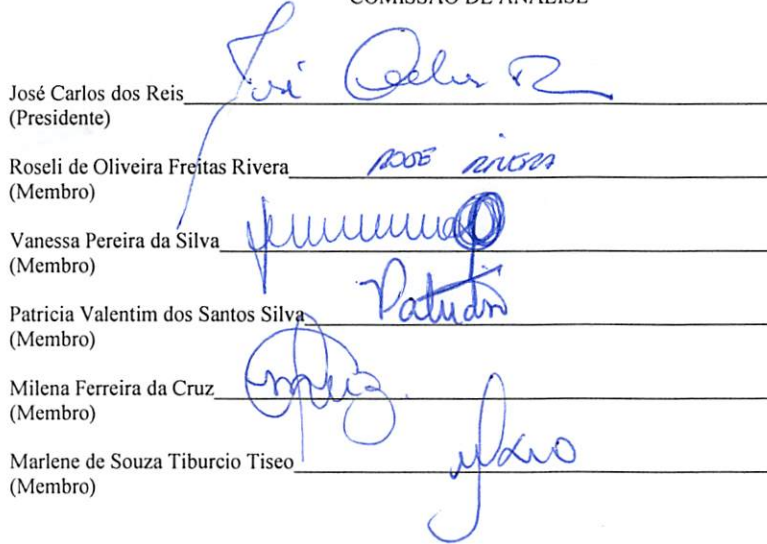 COMISSÃO DE ANÁLISE
José Carlos dos Reis José Carlos R
(Presidente)
Roseli de Oliveira Freitas Rivera ROSE RIVERA
(Membro)
Vanessa Pereira da Silva
(Membro)
Patricia Valentim dos Santos Silva
(Membro)
Milena Ferreira da Cruz
(Membro)
Marlene de Souza Tiburcio Tiseo
(Membro)